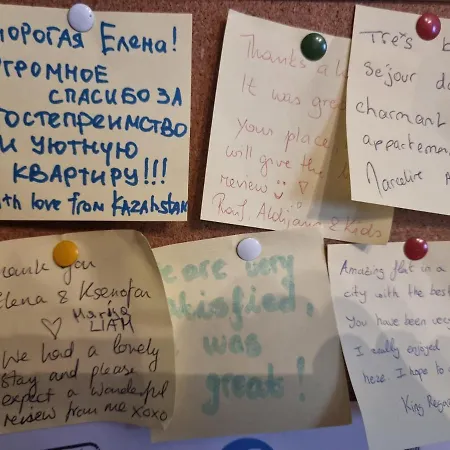 ДОРОГАЯ ЕЛЕНА!
ОГРОМНОЕ
СПАСИБО ЗА
ГОСТЕПРЕИМСТВО
И УЮТНУЮ
КВАРТИРУ!!!
with love from KAZAHSTAN
Thanks a
It was
Your place
will give the
review
& Kids
Très
séjour
charmant
apparteme
Marceline
Thank you
Elena &
Marko
LIAM
We had a lovely
stay and please
expect a wonderful
review from me xoxo
We are very
satisfied,
was
great!
Amazing flat in a
city with the best
You have been very
I really enjoyed
here. I hope to
King